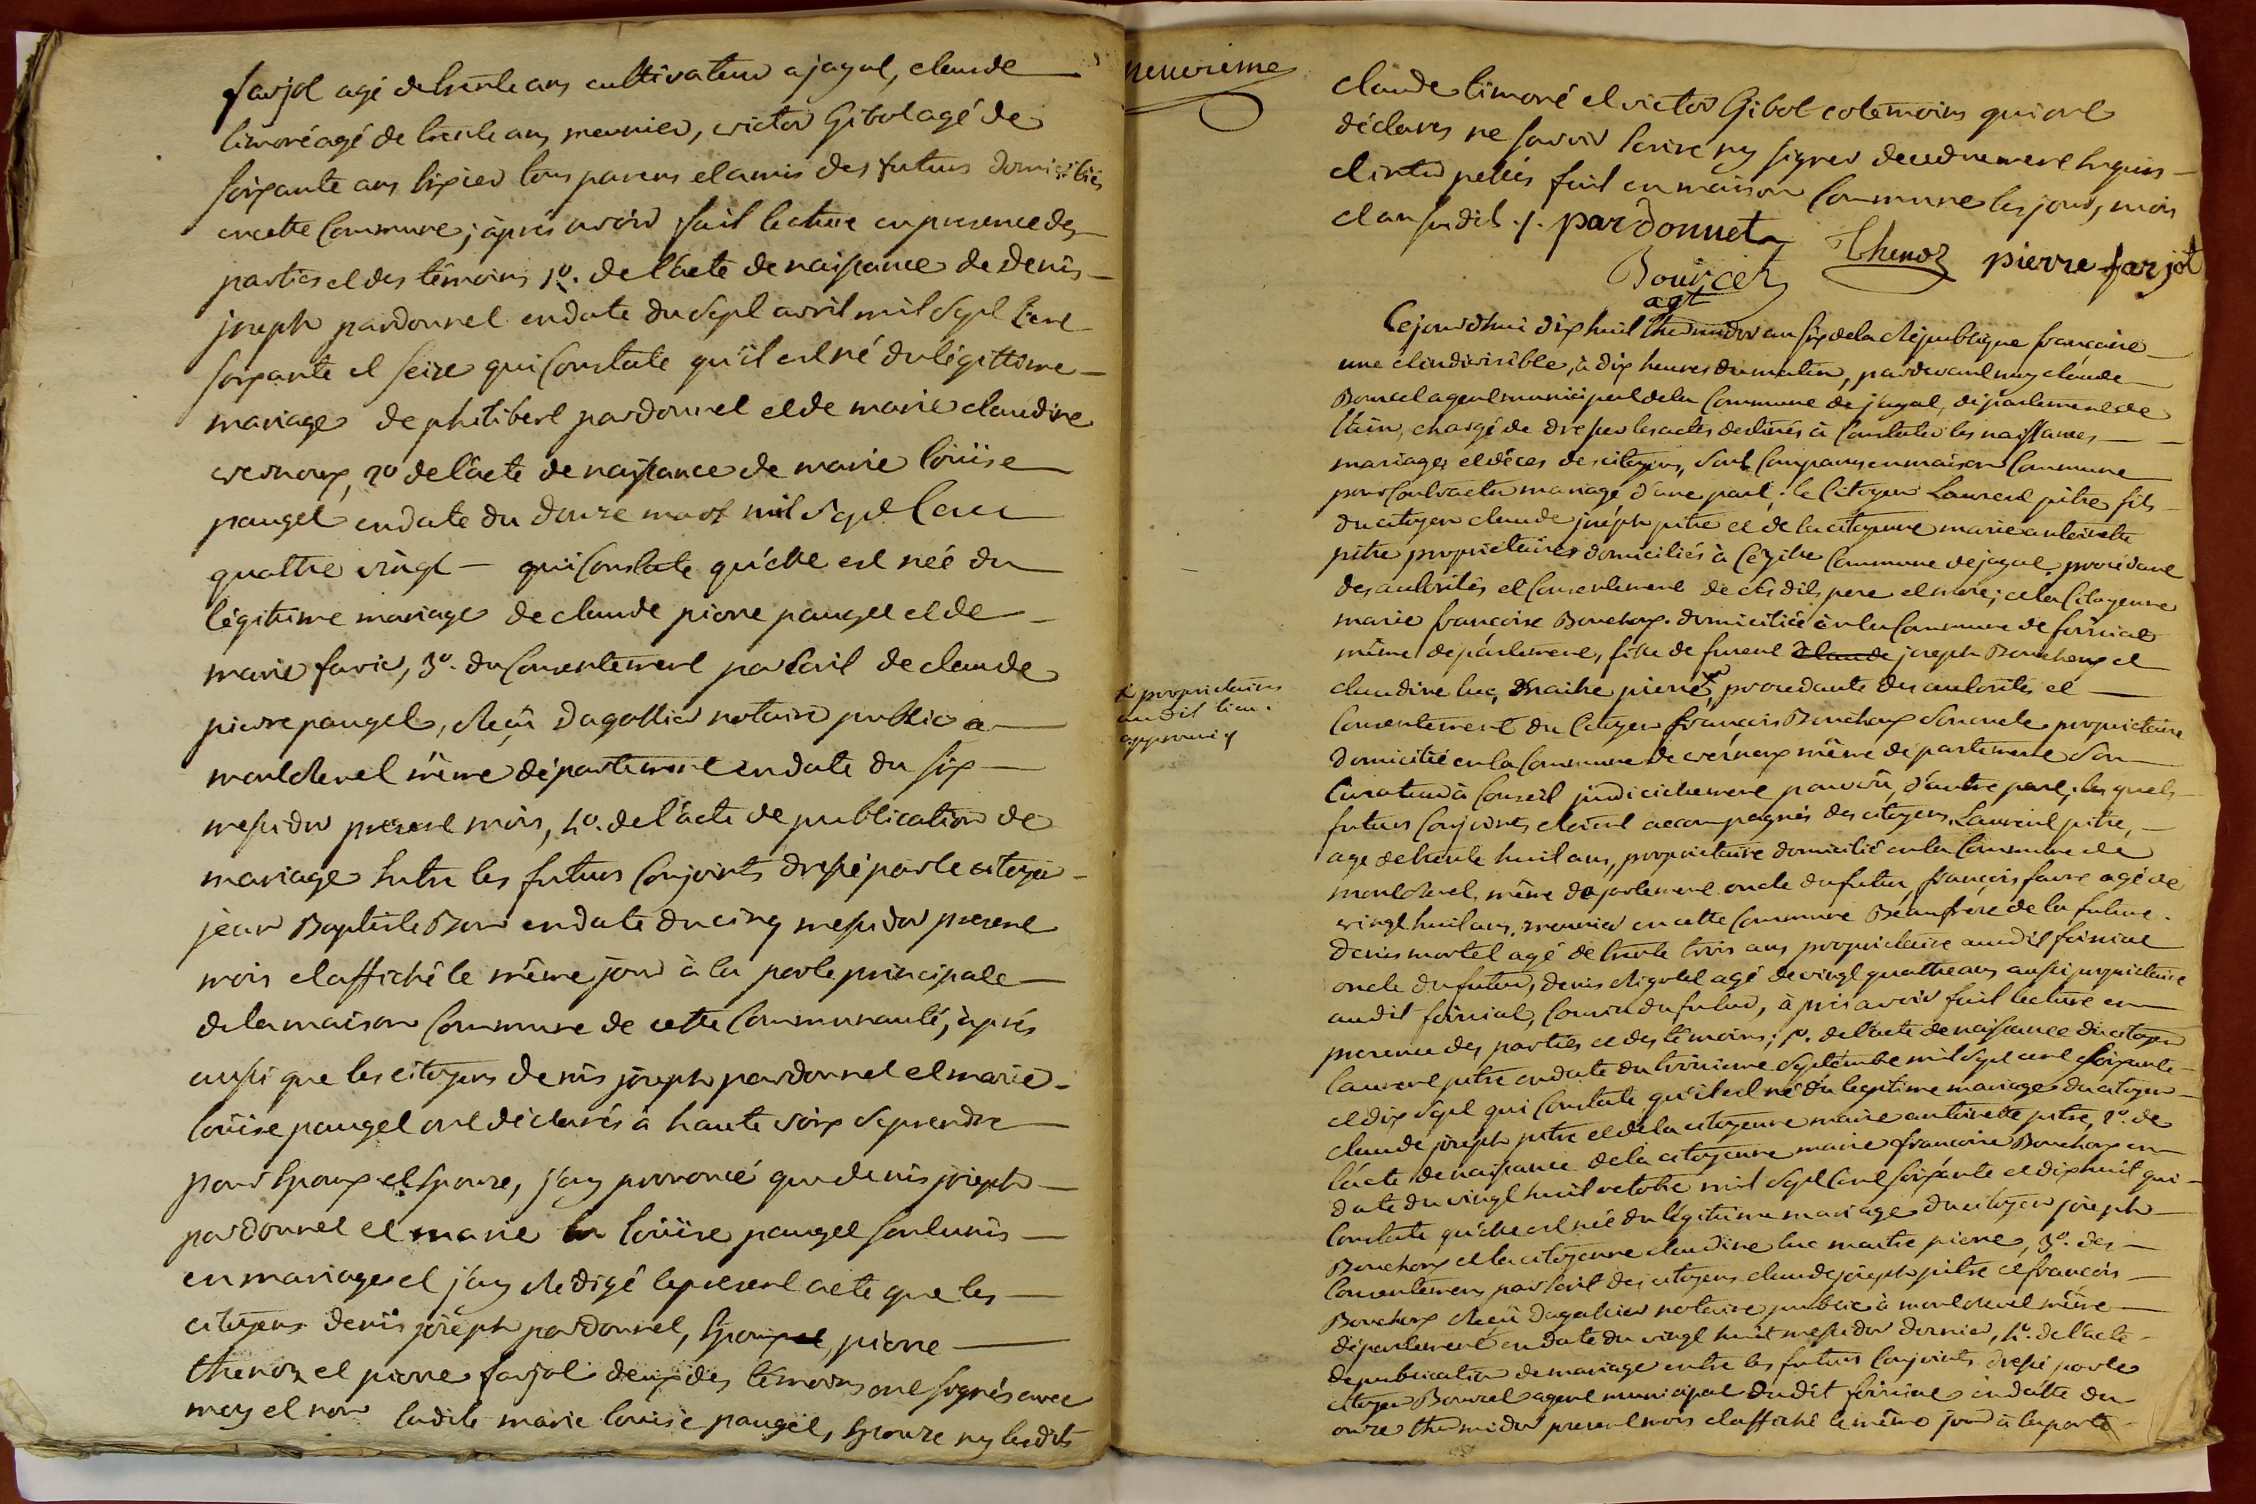 farjot agé de trente ans cultivateur a jayat, claude
limoré agé de trente ans meunier, victor Gibot agé de
soixante ans tixier tous parens et amis des futurs domiciliés
en cette Commune; après avoir fait lecture en presence des
parties et des témoins 1º. de l'acte de naissance de denis
joseph pardonnet en date du sept avril mil sept Cent
soixante et seize qui Constate qu'il est né du légittime
mariage de philibert pardonnet et de marie claudine
vernoux, 2º de l'acte de naissance de marie loüise
pauget en date du douze mars mil sept Cent
quattre vingt qui Constate qu'elle est née du
légitime mariage de claude pierre pauget et de
marie favier, 3º. du Consentement par Ecrit de claude
pierre pauget, Reçû Dagallier notaire public a
montrevel même département en date du six
messidor present mois, 4º. de l'acte de publication de
mariage Entre les futurs Conjoints dressé par le citoyen
jean Baptiste Bon en date du cinq messidor present
mois et affiché le même jour à la porte principale
de la maison Commune de cette Communauté, après
aussi que les citoyens denis joseph pardonnet et marie
loüise pauget ont déclarés à haute voix se prendre
pour Epoux et Epouse, j'ay prononcé que denis joseph
pardonnet et marie loüise pauget sont unis
en mariage et j'ay Redigé le present acte que les
citoyens denis joseph pardonnet, Epoux, pierre
thenoz et pierre farjot deux des témoins ont signés avec
moy et non ladite marie louise pauget, Epouse ny lesdits
neuvieme
claude limoré et victor Gibot cotemoins qui ont
déclarés ne savoir Ecrire ny signer de ce dhuement Enquis
et interpellés fait en maison Commune les jour, mois
et an susdit ./. pardonnet Thenoz pierre farjot
Bourcet
agt
Cejourd'hui dix huit thermidor an six de la République françoise
une et indivisible, à dix heures du matin, pardevant moy claude
Bourcet agent municipal de la Commune de jayat, département de
l'Ain, chargé de dresser les actes destinés à Constater les naissances
mariages et déces des citoyens, sont Comparus en maison Commune
pour Contracter mariage d'une part; le Citoyen Laurent pitre fils
du citoyen claude joseph pitre et de la citoyenne marie antoinette
pitre propriétaires domiciliés à Cézille Commune de jayat, procédant
des autorités et Consentement de ses dits pere et mere; et la Citoyenne
marie françoise Bouchoux domiciliée en la Commune de foissiat
même département, fille de furent claude joseph Bouchoux et
claudine luc, maitre pierre, procedante des autorités et
x proprietaires
audit lieu
approuvé
Consentement du Citoyen françois Bouchoux son oncle proprietaire
domicilié en la Commune de vernoux même departement son
Curateur à Conseil judiciairement pourvû, d'autre part, lesquels
futurs Conjoints étoient accompagnés des citoyens Laurent pitre,
agé de trente huit ans, propriétaire domicilié en la Commune de
montrevel, même departement oncle du futur, françois favre agé de
vingt huit ans, meunier en cette Commune Beaufrere de la future.
denis mortel agé de trente trois ans proprietaire audit foissiat
oncle du futur, denis Rigotel agé de vingt quatre ans aussi proprietaire
audit foissiat, Cousin du futur, après avoir fait lecture en
presence des parties et des témoins; 1º. de l'acte de naissance du citoyen
laurent pitre en date du troisieme septembre mil sept cent soixante
et dix sept qui Constate qu'il est né du legitime mariage du citoyen
claude joseph pitre et de la citoyenne marie antoinette pitre, 2º. de
l'acte de naissance de la citoyenne marie françoise Bouchoux en
date du vingt huit octobre mil sept Cent soixante et dix huit qui
Constate qu'elle est née du légitime mariage du citoyen joseph
Bouchoux et la citoyenne claudine luc maitre pierre, 3º. des
Consentemens par Ecrit des citoyens claude joseph pitre et françois
Bouchoux Reçû Dagallier notaire public à montrevel même
département en date du vingt huit messidor dernier, 4º. de l'acte
de publication de mariage entre les futurs Conjoints dressé par le
citoyen Bourcet agent municipal dudit foissiat en datte du
onze thermidor present mois et affiché le même jour à la porte